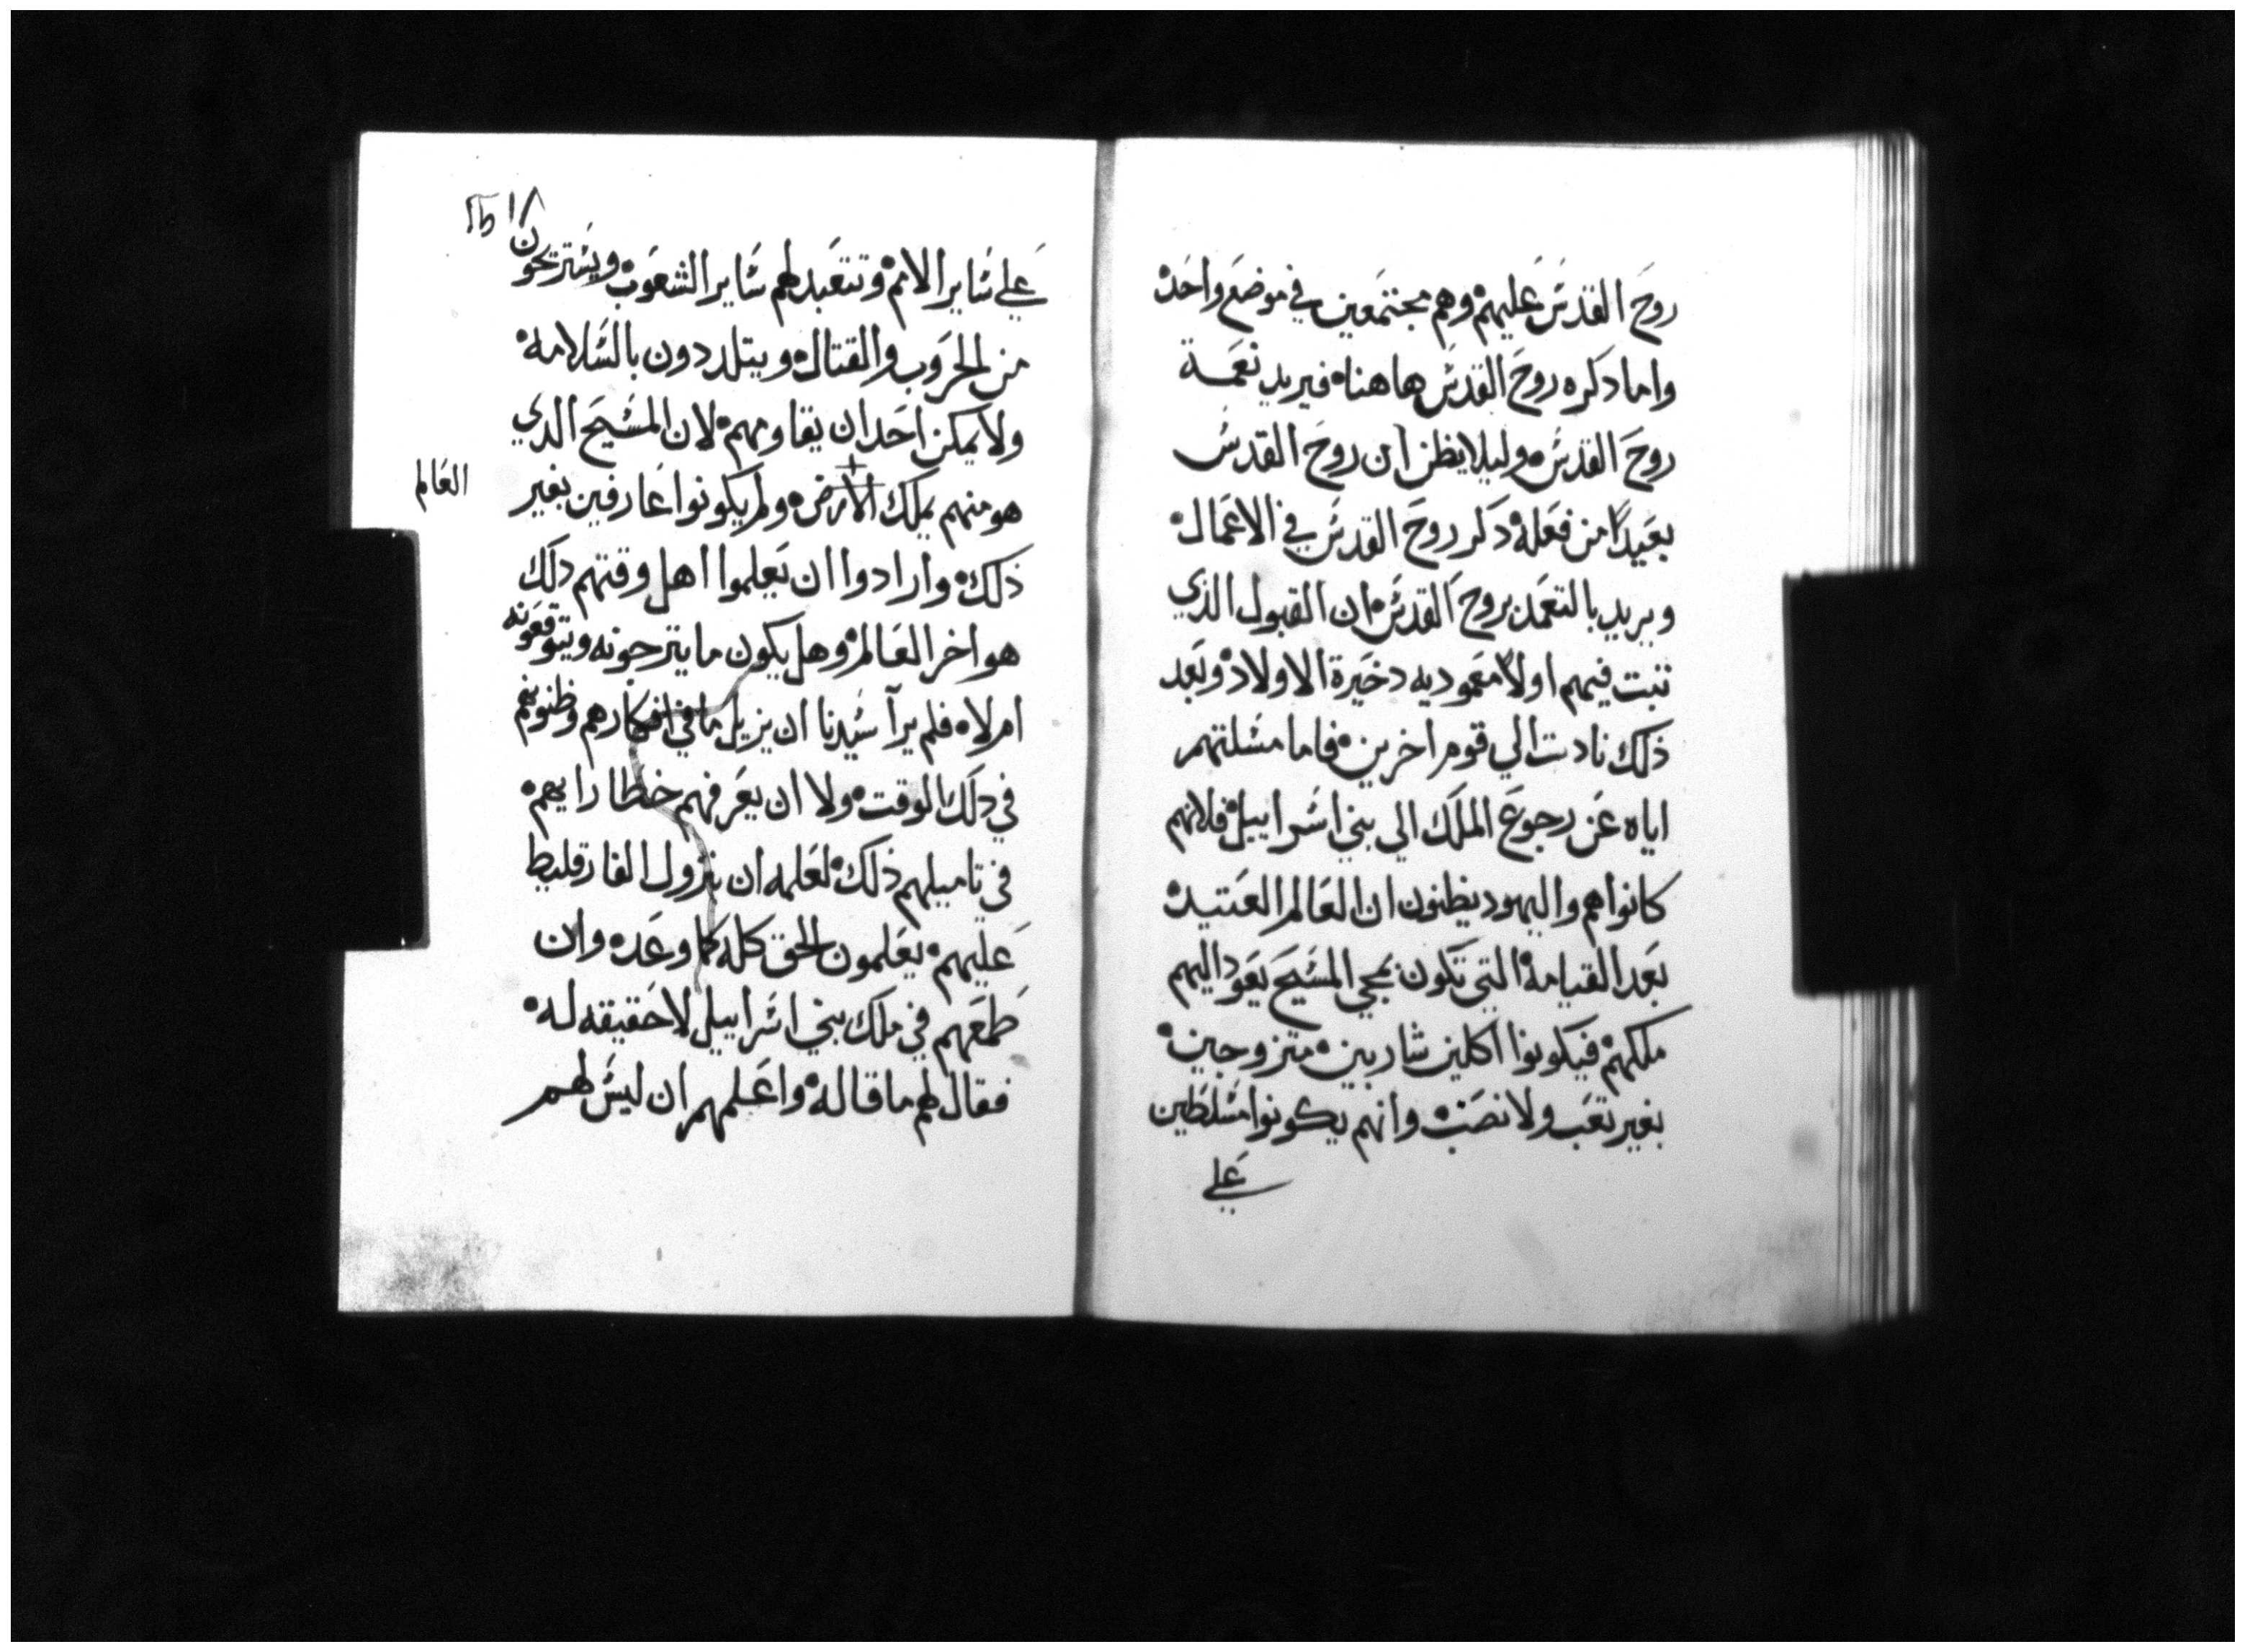 روح القدس عليهم وهم مجتمعين في موضع واحد
واما دكره روح القدس هاهنا فيريد نعمة
روح القدس وليلا يظن ان روح القدس
بعيدًا من فعله دكر روح القدس في الاعمال
ويريد بالتعمد بروح القدس ان القبول الذي
تبت فيهم اولاً معموديه دخيرة الاولاد وبعد
ذلك نادت الي قوم اخرين فاما مسلتهم
اياه عن رجوع الملك الي بني اسراييل فلانهم
كانوا هم واليهود يظنون ان العالم العتيد
بعد القيامة التي تكون بمجي المسيح يعود اليهم
ملكهم فيكونوا اكلين شاربين متزوجين
بغير تعب ولا نصب وانهم يكونوا مسلطين
علي
علي ساير الامم وتتعبد لهم ساير الشعوب ويستريحون
من الحروب والقتال ويتلددون بالسلامة
ولا يمكن احد ان يقاومهم لان المسيح الدي
هو منهم يملك الارض ولم يكونوا عارفين بغير
العالم
ذلك وارادوا ان يعلموا اهل وقتهم دلك
هو اخر العالم وهل يكون ما يترجونه ويتوقعونه
ام لا فلم يرآ سيدنا ان يزيل ما في افكارهم وظنونهم
في دلك الوقت ولا ان يعرفهم خطا رايهم
في تاميلهم ذلك لعلمه ان بنزول الفارقليط
عليهم يعلمون الحق كله كما وعده وان
طمعهم في ملك بني اسراييل لا حقيقه له
فقال لهم ما قاله واعلمهم ان ليس لهم